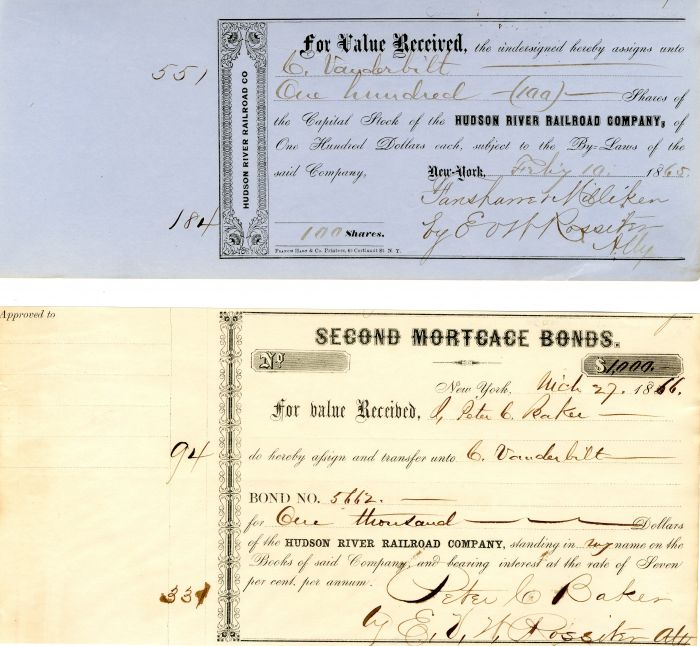 For Value Received, the undersigned hereby assigns unto
551
C. Vanderbilt
One hundred (100) Shares of
the Capital Stock of the HUDSON RIVER RAILROAD COMPANY, of
One Hundred Dollars each, subject to the By-Laws of the
said Company,
New-York, Feb'y 10. 1865.
HUDSON RIVER RAILROAD CO
Fanshawe & Milliken
184
by E V W Rossiter
Atty
100 Shares.
Francis Hart & Co. Printers, 63 Cortlandt St. N. Y.
Approved to
SECOND MORTGAGE BONDS.
No
$1,000.
New York, Mch 27, 1866.
For value Received, I, Peter C. Baker
94
do hereby assign and transfer unto C. Vanderbilt
BOND NO. 5662.
for One thousand Dollars
of the HUDSON RIVER RAILROAD COMPANY, standing in my name on the
Books of said Company, and bearing interest at the rate of Seven
per cent. per annum.
331
Peter C Baker
by E. V. W. Rossiter Att